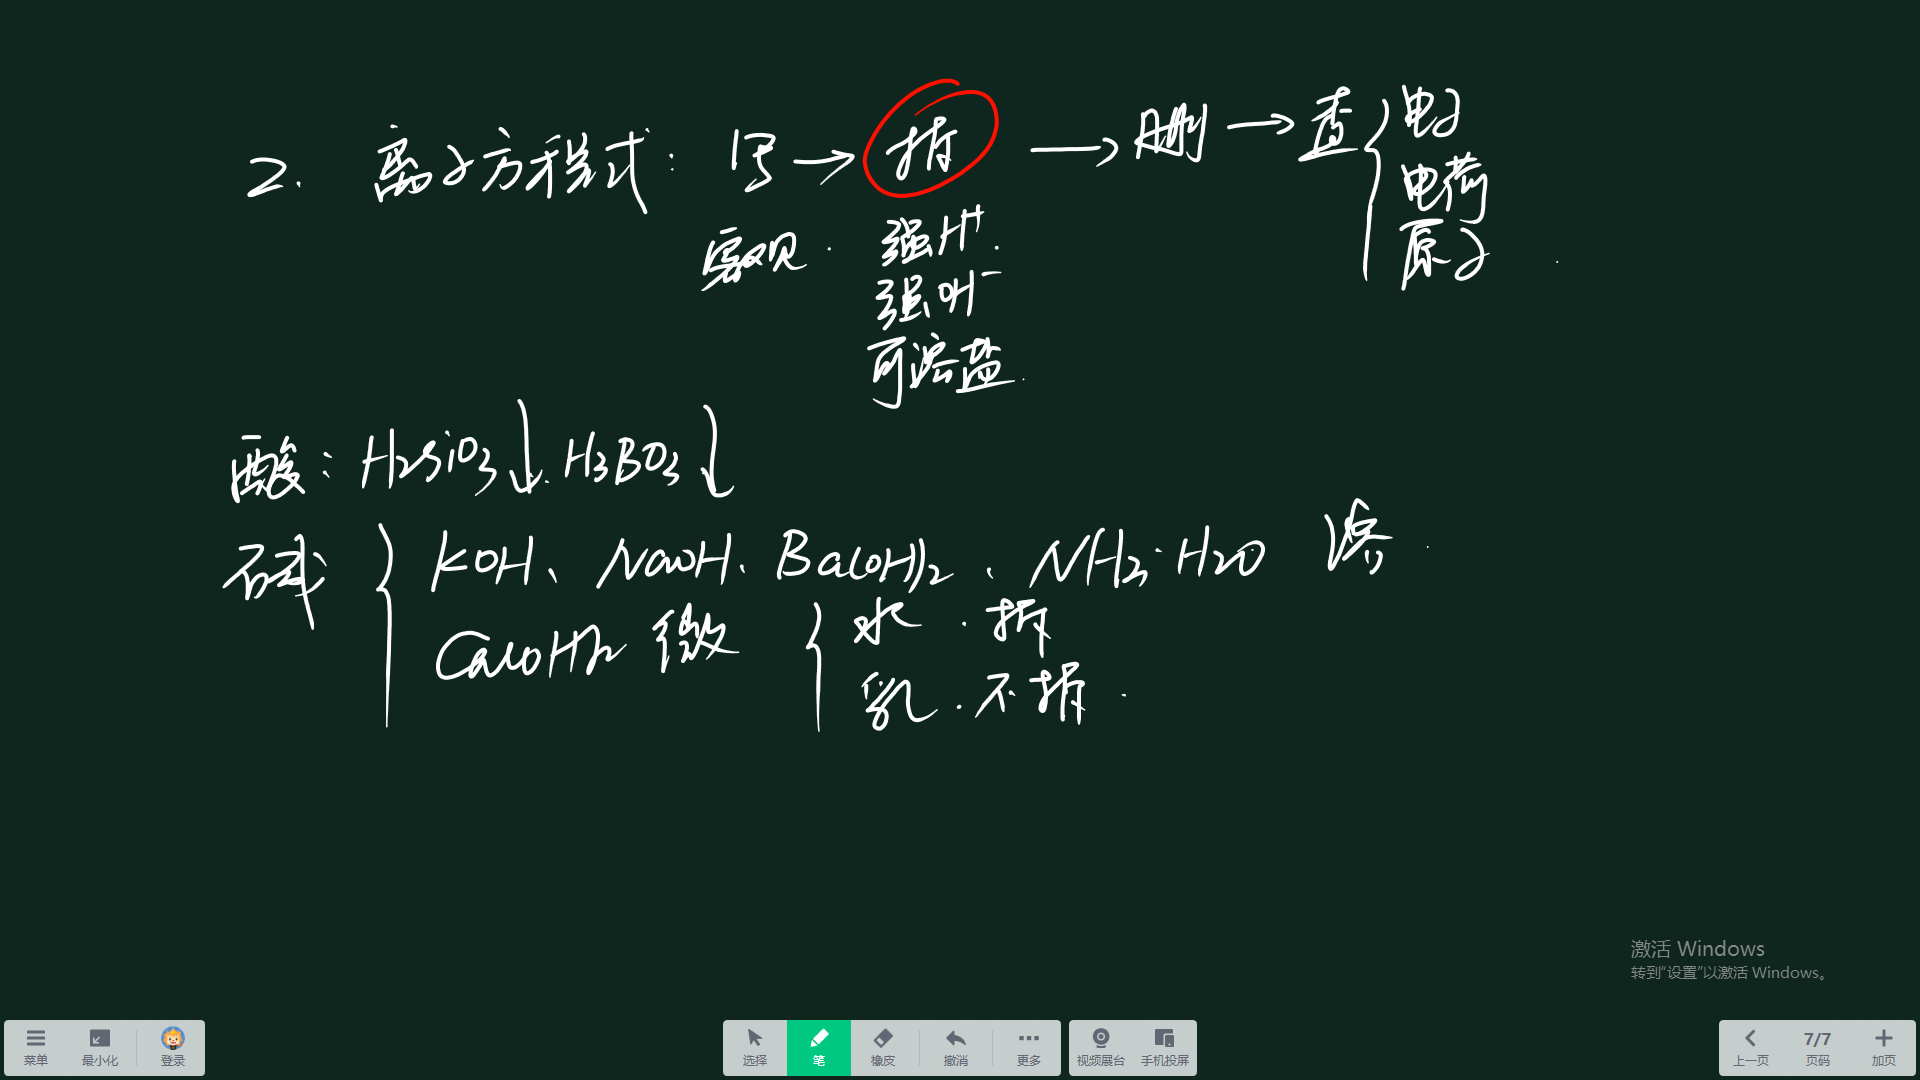 2. 离子方程式: 写→拆→删→查{电子
电荷
原子
客观. 强H⁺.
强OH⁻
可溶盐.
酸: H₂SiO₃↓. H₃BO₃↓
碱{KOH、NaOH、Ba(OH)₂、NH₃·H₂O 溶.
Ca(OH)₂ 微{水.拆
乳.不拆.
激活 Windows
转到“设置”以激活 Windows。
菜单 最小化 登录 选择 笔 橡皮 撤消 更多 视频展台 手机投屏 上一页 7/7 页码 加页